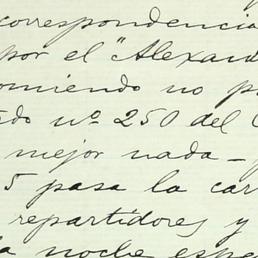 correspondencia
por el "Alexand
omiendo no p
do nº 250 del
mejor nada –
5 pasa la car
repartidores y
a noche espe